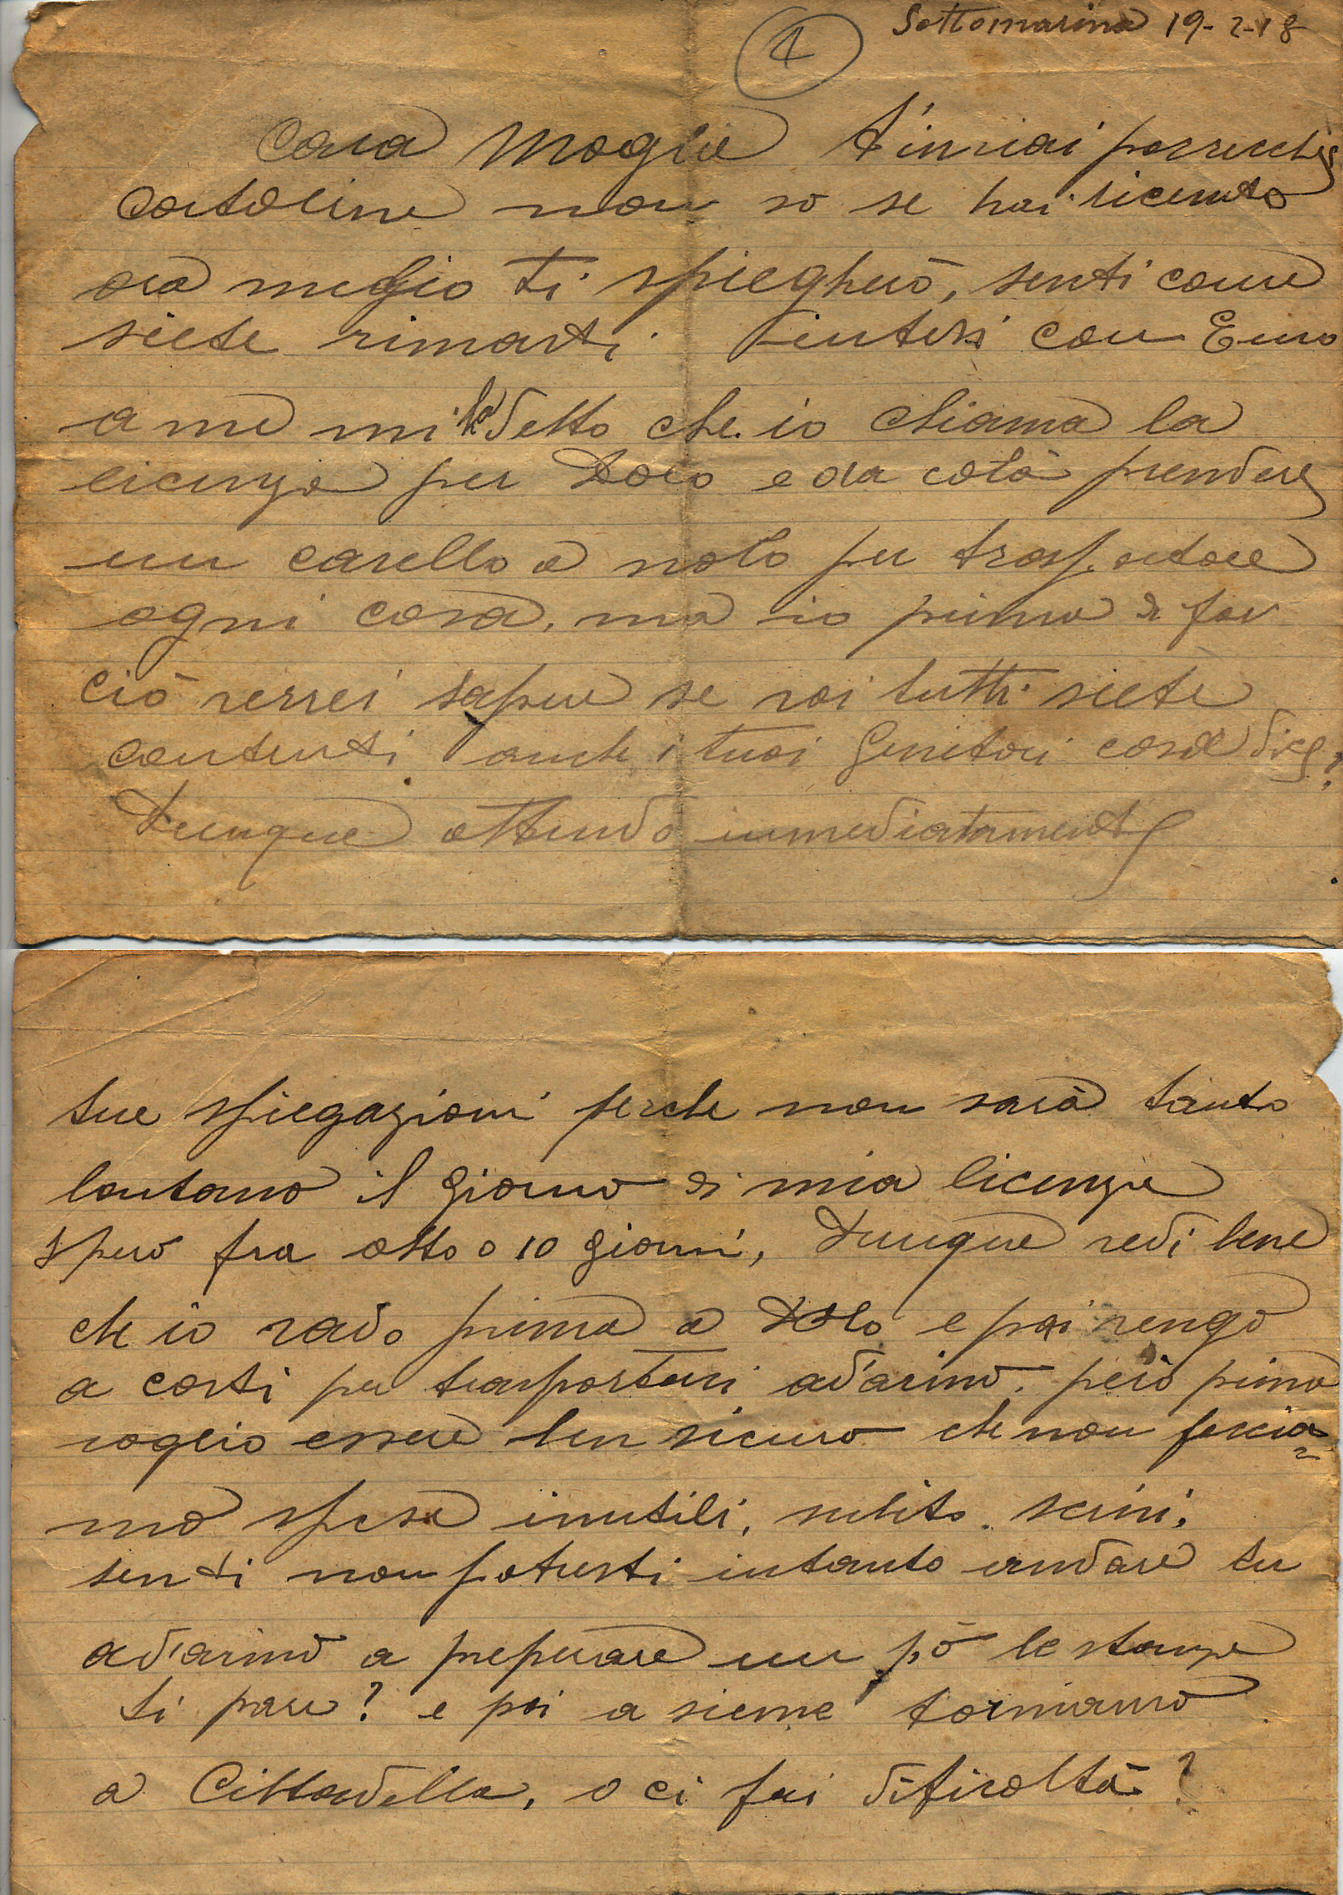 4
Sottomarina 19-2-18
Cara Moglie t'inviai parrecchie
cartoline non so se hai ricevuto
ora meglio ti spiegherò, senti come
siete rimasti intesi con
a me mi ha detto che io chiama la
licenza per Dolo e da colà prendere
un carello a nolo per trasportare
ogni cosa, ma io prima di far
ciò verrei sapere se voi tutti siete
contenti anche i tuoi Genitori cosa dice?
Dunque attendo immediatamente
tue spiegazioni perche non sarà tanto
lontano il giorno di mia licenza
spero fra otto o 10 giorni, Dunque vedi bene
che io vado prima a Dolo e poi vengo
a costi per trasportarci ad'arino. però prima
voglio essere ben sicuro che non faccia=
mo spese inutili, subito scrivi.
senti non potresti intanto andare tu
ad'arino a preperare un pò le stanze
ti pare? e poi a sieme torniamo
a Cittadella, o ci fai dificoltà?